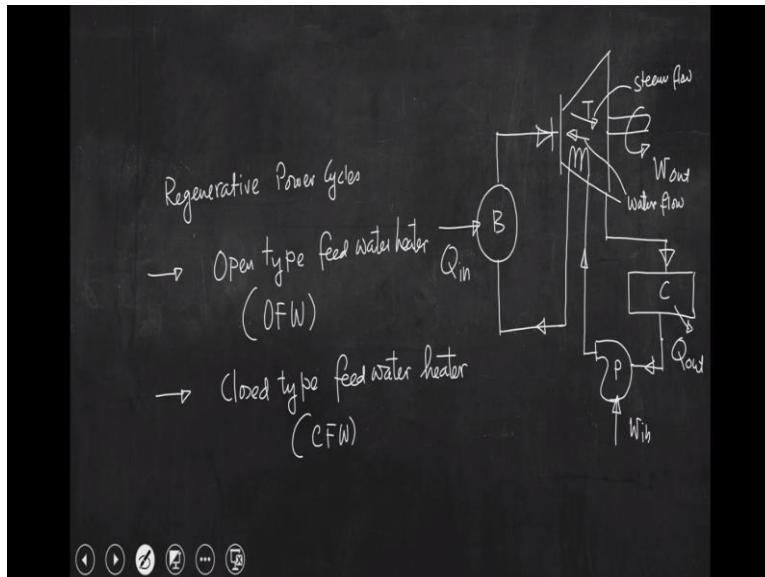 Regenerative Power Cycles
→ Open type feed water heater
(OFW)
→ Closed type feed water heater
(CFW)
B
Qin
T
steam flow
Wout
water flow
C
Qout
P
Win